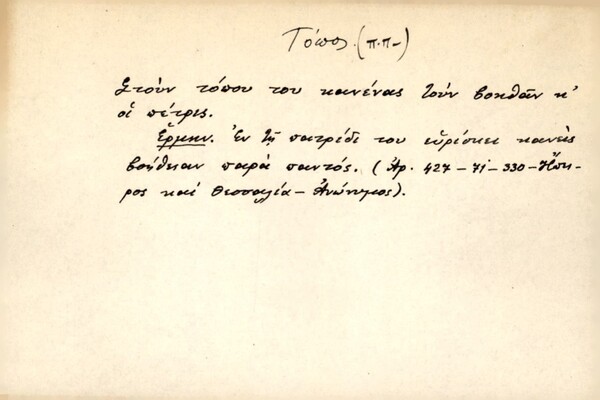 Τόπος (π.π-)
Στοὺν τόπου του κανένας τοὺν βοηθᾶν κ'
οἱ πέτρες.
Ἑρμην. Ἐν τῇ πατρίδι του εὑρίσκει κανεὶς
βοήθειαν παρὰ παντός. (Ἀρ. 427-71-330-Ἤπει-
ρος καὶ Θεσσαλία-Ἀνώνυμος).